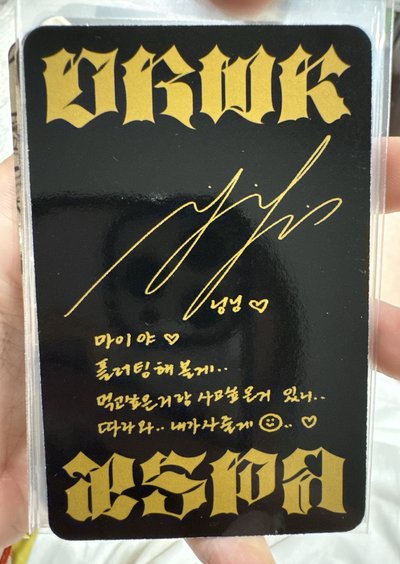 DRWK
닝닝 ♡
마이야 ♡
플러팅해볼게..
먹고싶은거랑 사고싶은거 있니..
따라와.. 내가사줄게 ☺.. ♡
æspa